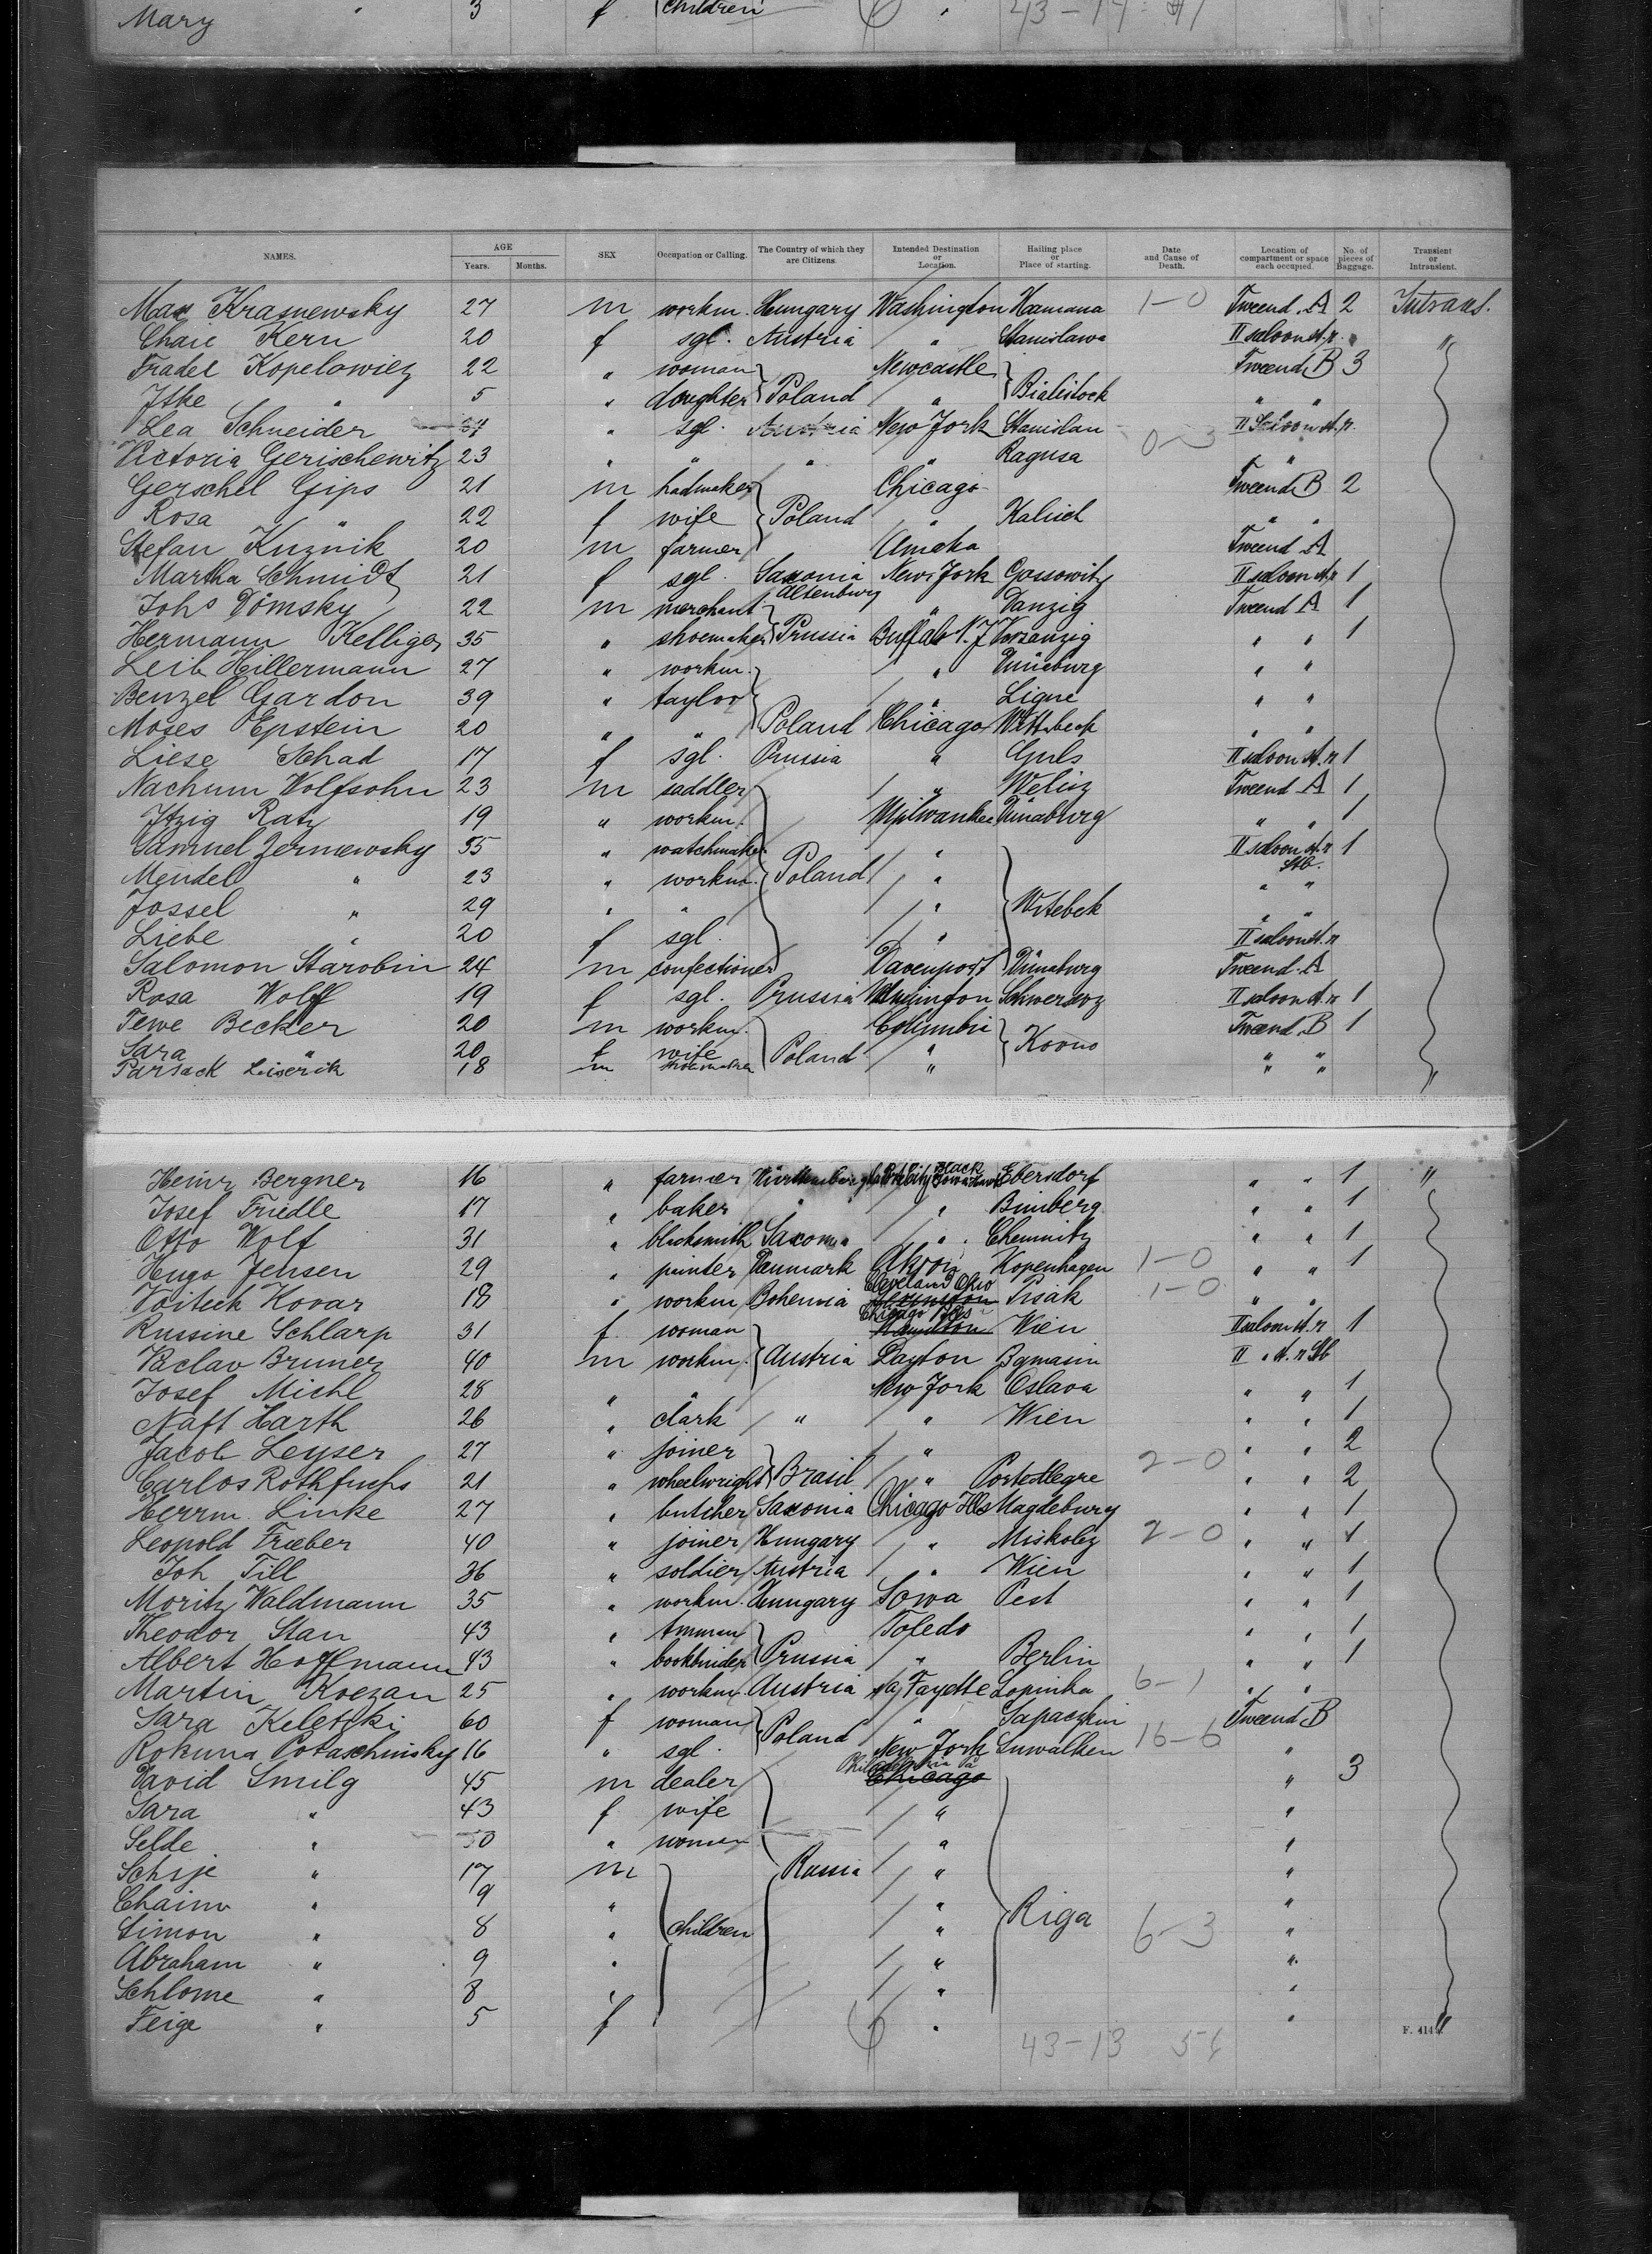 Mary " 3 f children " 43-14 41
NAMES. AGE Years. Months. SEX Occupation or Calling. The Country of which they are Citizens. Intended Destination or Location. Hailing place or Place of starting. Date and Cause of Death. Location of compartment or space each occupied. No. of pieces of Baggage. Transient or Intransient.
Max Krasnewsky 27 m workm. Hungary Washington Hamana 1-0 Tweend. A 2 Intrans.
Chaie Kern 20 f sgl. Austria " Stanislawa II saloon st. r. "
Fradel Kopelowicz 22 " woman Newcastle Tweend. B 3
Itke " 5 " daughter Poland " Bialistock " "
Lea Schneider 37 " sgl. Austria New York Stanislau II Saloon st. r.
Victoria Gerischewitz 23 " " " " Ragusa 0-3 " "
Gerschel Gips 21 m hadmaker Chicago Tweend. B 2
Rosa " 22 f wife Poland " Kalisch " "
Stefan Kuznik 20 m farmer Omaha Tweend A
Martha Schmidt 21 f sgl. Saxonia Altenburg New York Gossowitz II saloon st. r 1
Johs Domsky 22 m merchant " Danzig Tweend A 1
Hermann Kelliger 35 " shoemaker Prussia Buffalo N.Y " " 1
Leib Hillermann 27 " workm. " Dünaburg " "
Benzel Gardon 39 " taylor " Ligne " "
Moses Epstein 20 " " Poland Chicago Wittebeck " "
Liese Schad 17 f sgl. Prussia " Guls II saloon st. r 1
Nachum Wolfsohn 23 m saddler " Weliz Tweend A 1
Itzig Ratz 19 " workm. Milwaukee Dünaburg " " 1
Samuel Zernewsky 55 " watchmaker " II saloon st. r 1
Mendel " 23 " workm. Poland " Stb. " "
Jossel " 29 " " " Witebek " "
Liebe " 20 f sgl. " II saloon st. r
Salomon Starobin 24 m confectioner Davenport Dünaburg Tweend. A
Rosa Wolff 19 f sgl. Prussia Schwersenz II saloon st. r 1
Tewe Becker 20 m workm. Columbia Tweend. B 1
Sara " 20 f wife Poland " Kovno " "
Parsack Leiserik 18 m shoemaker " " " "
Heinr Bergner 16 " farmer Württemberg Black Ebersdorf " " 1 "
Josef Friedle 17 " baker " " Bimberg " " 1
Otto Wolf 31 " blacksmith Saxonia " Chemnitz " " 1
Hugo Jensen 29 " painter Danmark Akron Kopenhagen 1-0 " " 1
Voiteck Kovar 18 " workm Bohemia Cleveland Ohio Pisak 1-0 " "
Russine Schlarp 31 f woman Chicago Ills Hamilton Wien II saloon st. r 1
Vaclav Bruner 40 m workm. Austria Dayton Bgmasin II " st. r Stb
Josef Michl 28 " " New York Oslava " " 1
Naft Harth 26 " clark " " Wien " " 1
Jacob Leyser 27 " joiner " " " 2
Carlos Rothfuchs 21 " wheelwright Brasil " Porto Alegre 2-0 " " 2
Herrm. Linke 27 " butcher Saxonia Chicago Ills Magdeburg " " 1
Leopold Fraeber 40 " joiner Hungary " Miskolcz 2-0 " " 1
Joh Till 36 " soldier Austria " Wien " " 1
Moritz Waldmann 35 " workm. Hungary Iowa Pest " " 1
Theodor Stan 43 " Toledo " " 1
Albert Hoffmann 43 " bookbinder Prussia " Berlin " " 1
Martin Koczan 25 " workm. Austria La Fayette Lopinka 6-1 " "
Sara Keletzki 60 f woman " Sapaczkin Tweend B
Rokuna Potaschinsky 16 " sgl. Poland New York Suwalken 16-6 "
David Smilg 45 m dealer Philadelphia Pa Chicago " 3
Sara " 43 f wife " "
Selde " 50 " woman " "
Schije " 17 m Russia " "
Chaim " 9 " " "
Simon " 8 " children " Riga 6-3 "
Abraham " 9 " " "
Schlome " 8 " " "
Feige " 5 f " " "
43-13 56
F. 414